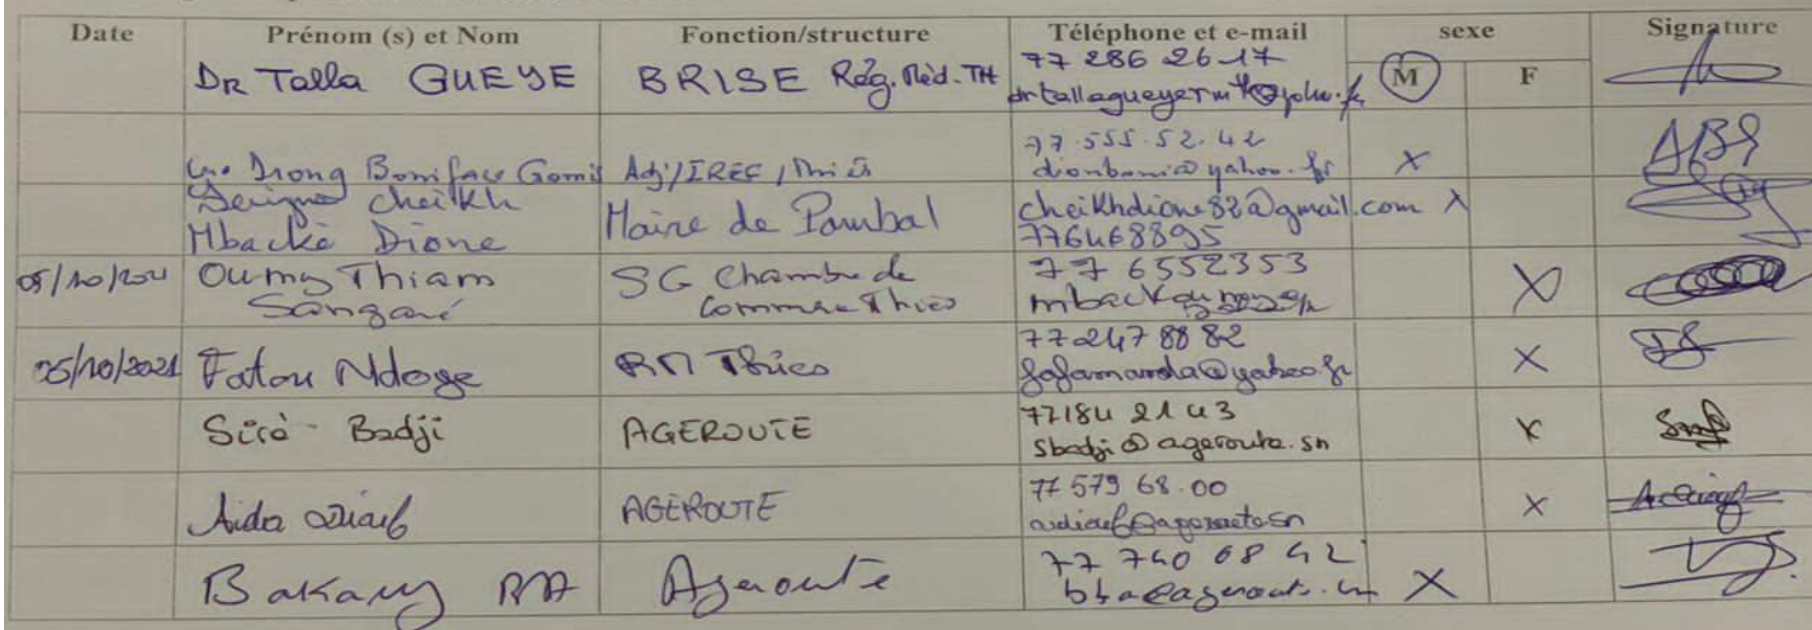 Date Prénom (s) et Nom Fonction/structure Téléphone et e-mail sexe Signature
M F
DR Talla GUEYE BRISE Rég. Méd. TH 77 286 26 17
Diong Boniface Gomis Adj/IREF/Thiès 77.555.52.42
dionboni@yahoo.fr X
Serigne Cheikh
Mbacké Dione Maire de Pambal cheikhdione82@gmail.com X
776468895
05/10/2021 Oumy Thiam
Sangaré SG Chambre de
Commerce Thiès 77 6552353
X
05/10/2021 Fatou Ndoye RN Thies 77 247 88 82
fafamanda@yahoo.fr X
Siré Badji AGEROUTE 77184 21 43
sbadji@ageroute.sn X
Aida Diouf AGEROUTE 77 579 68.00
X
Bakary BA Ageroute 77 740 68 42
X